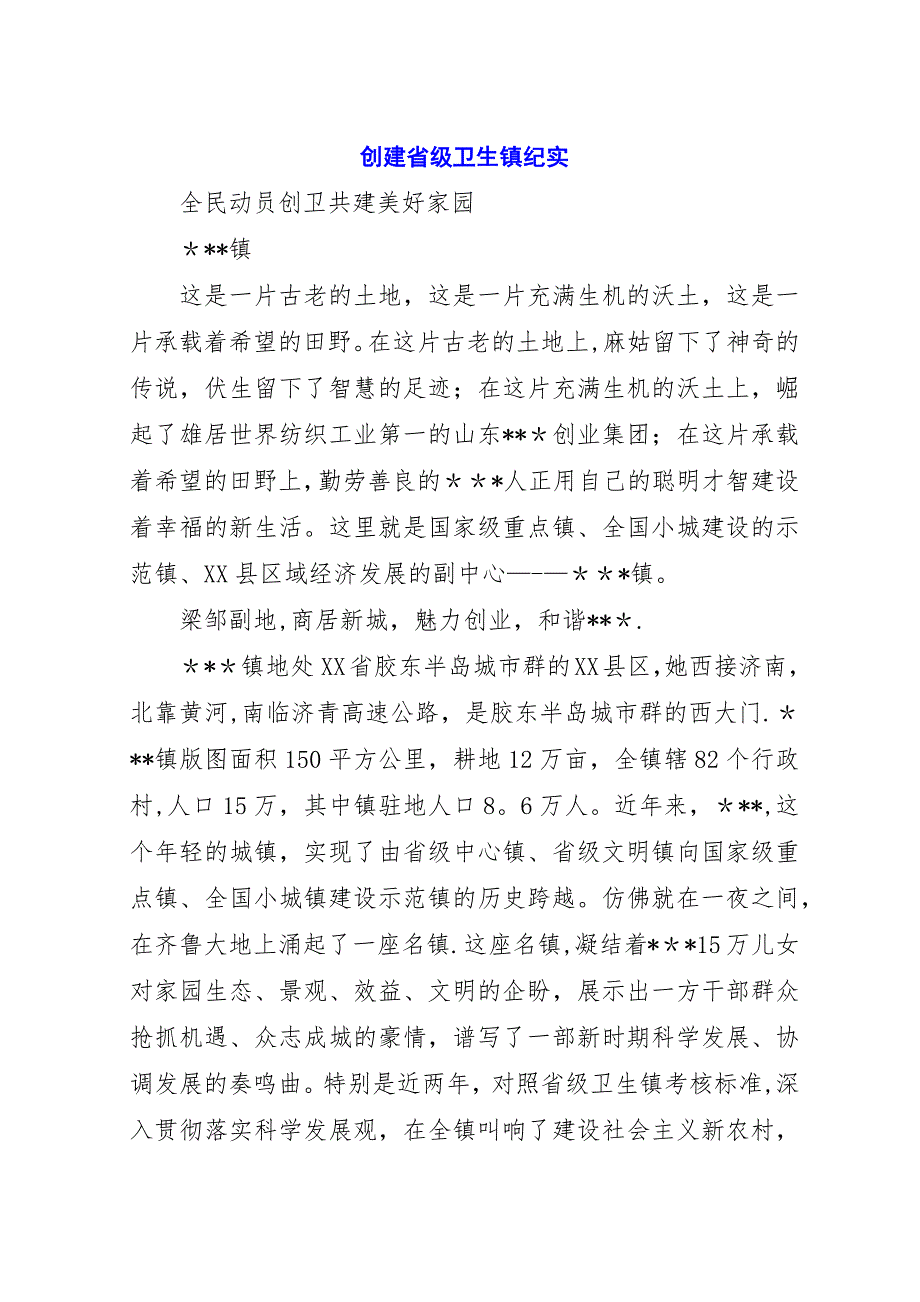 创建省级卫生镇纪实
全民动员创卫共建美好家园
＊**镇
这是一片古老的土地，这是一片充满生机的沃土，这是一
片承载着希望的田野。在这片古老的土地上,麻姑留下了神奇的
传说，伏生留下了智慧的足迹；在这片充满生机的沃土上，崛
起了雄居世界纺织工业第一的山东**＊创业集团；在这片承载
着希望的田野上,勤劳善良的＊＊*人正用自己的聪明才智建设
着幸福的新生活。这里就是国家级重点镇、全国小城建设的示
范镇、XX县区域经济发展的副中心—-—＊＊*镇。
梁邹副地,商居新城，魅力创业，和谐**＊.
＊*＊镇地处XX省胶东半岛城市群的XX县区,她西接济南，
北靠黄河,南临济青高速公路，是胶东半岛城市群的西大门.＊
**镇版图面积150平方公里，耕地12万亩，全镇辖82个行政
村,人口15万，其中镇驻地人口8。6万人。近年来，＊**,这
个年轻的城镇，实现了由省级中心镇、省级文明镇向国家级重
点镇、全国小城镇建设示范镇的历史跨越。仿佛就在一夜之间，
在齐鲁大地上涌起了一座名镇.这座名镇,凝结着*＊*15万儿女
对家园生态、景观、效益、文明的企盼，展示出一方干部群众
抢抓机遇、众志成城的豪情，谱写了一部新时期科学发展、协
调发展的奏鸣曲。特别是近两年，对照省级卫生镇考核标准,深
入贯彻落实科学发展观，在全镇叫响了建设社会主义新农村，